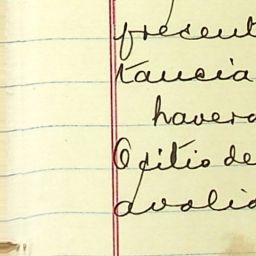 frecuent
tancia
havera
O citio de
avalia